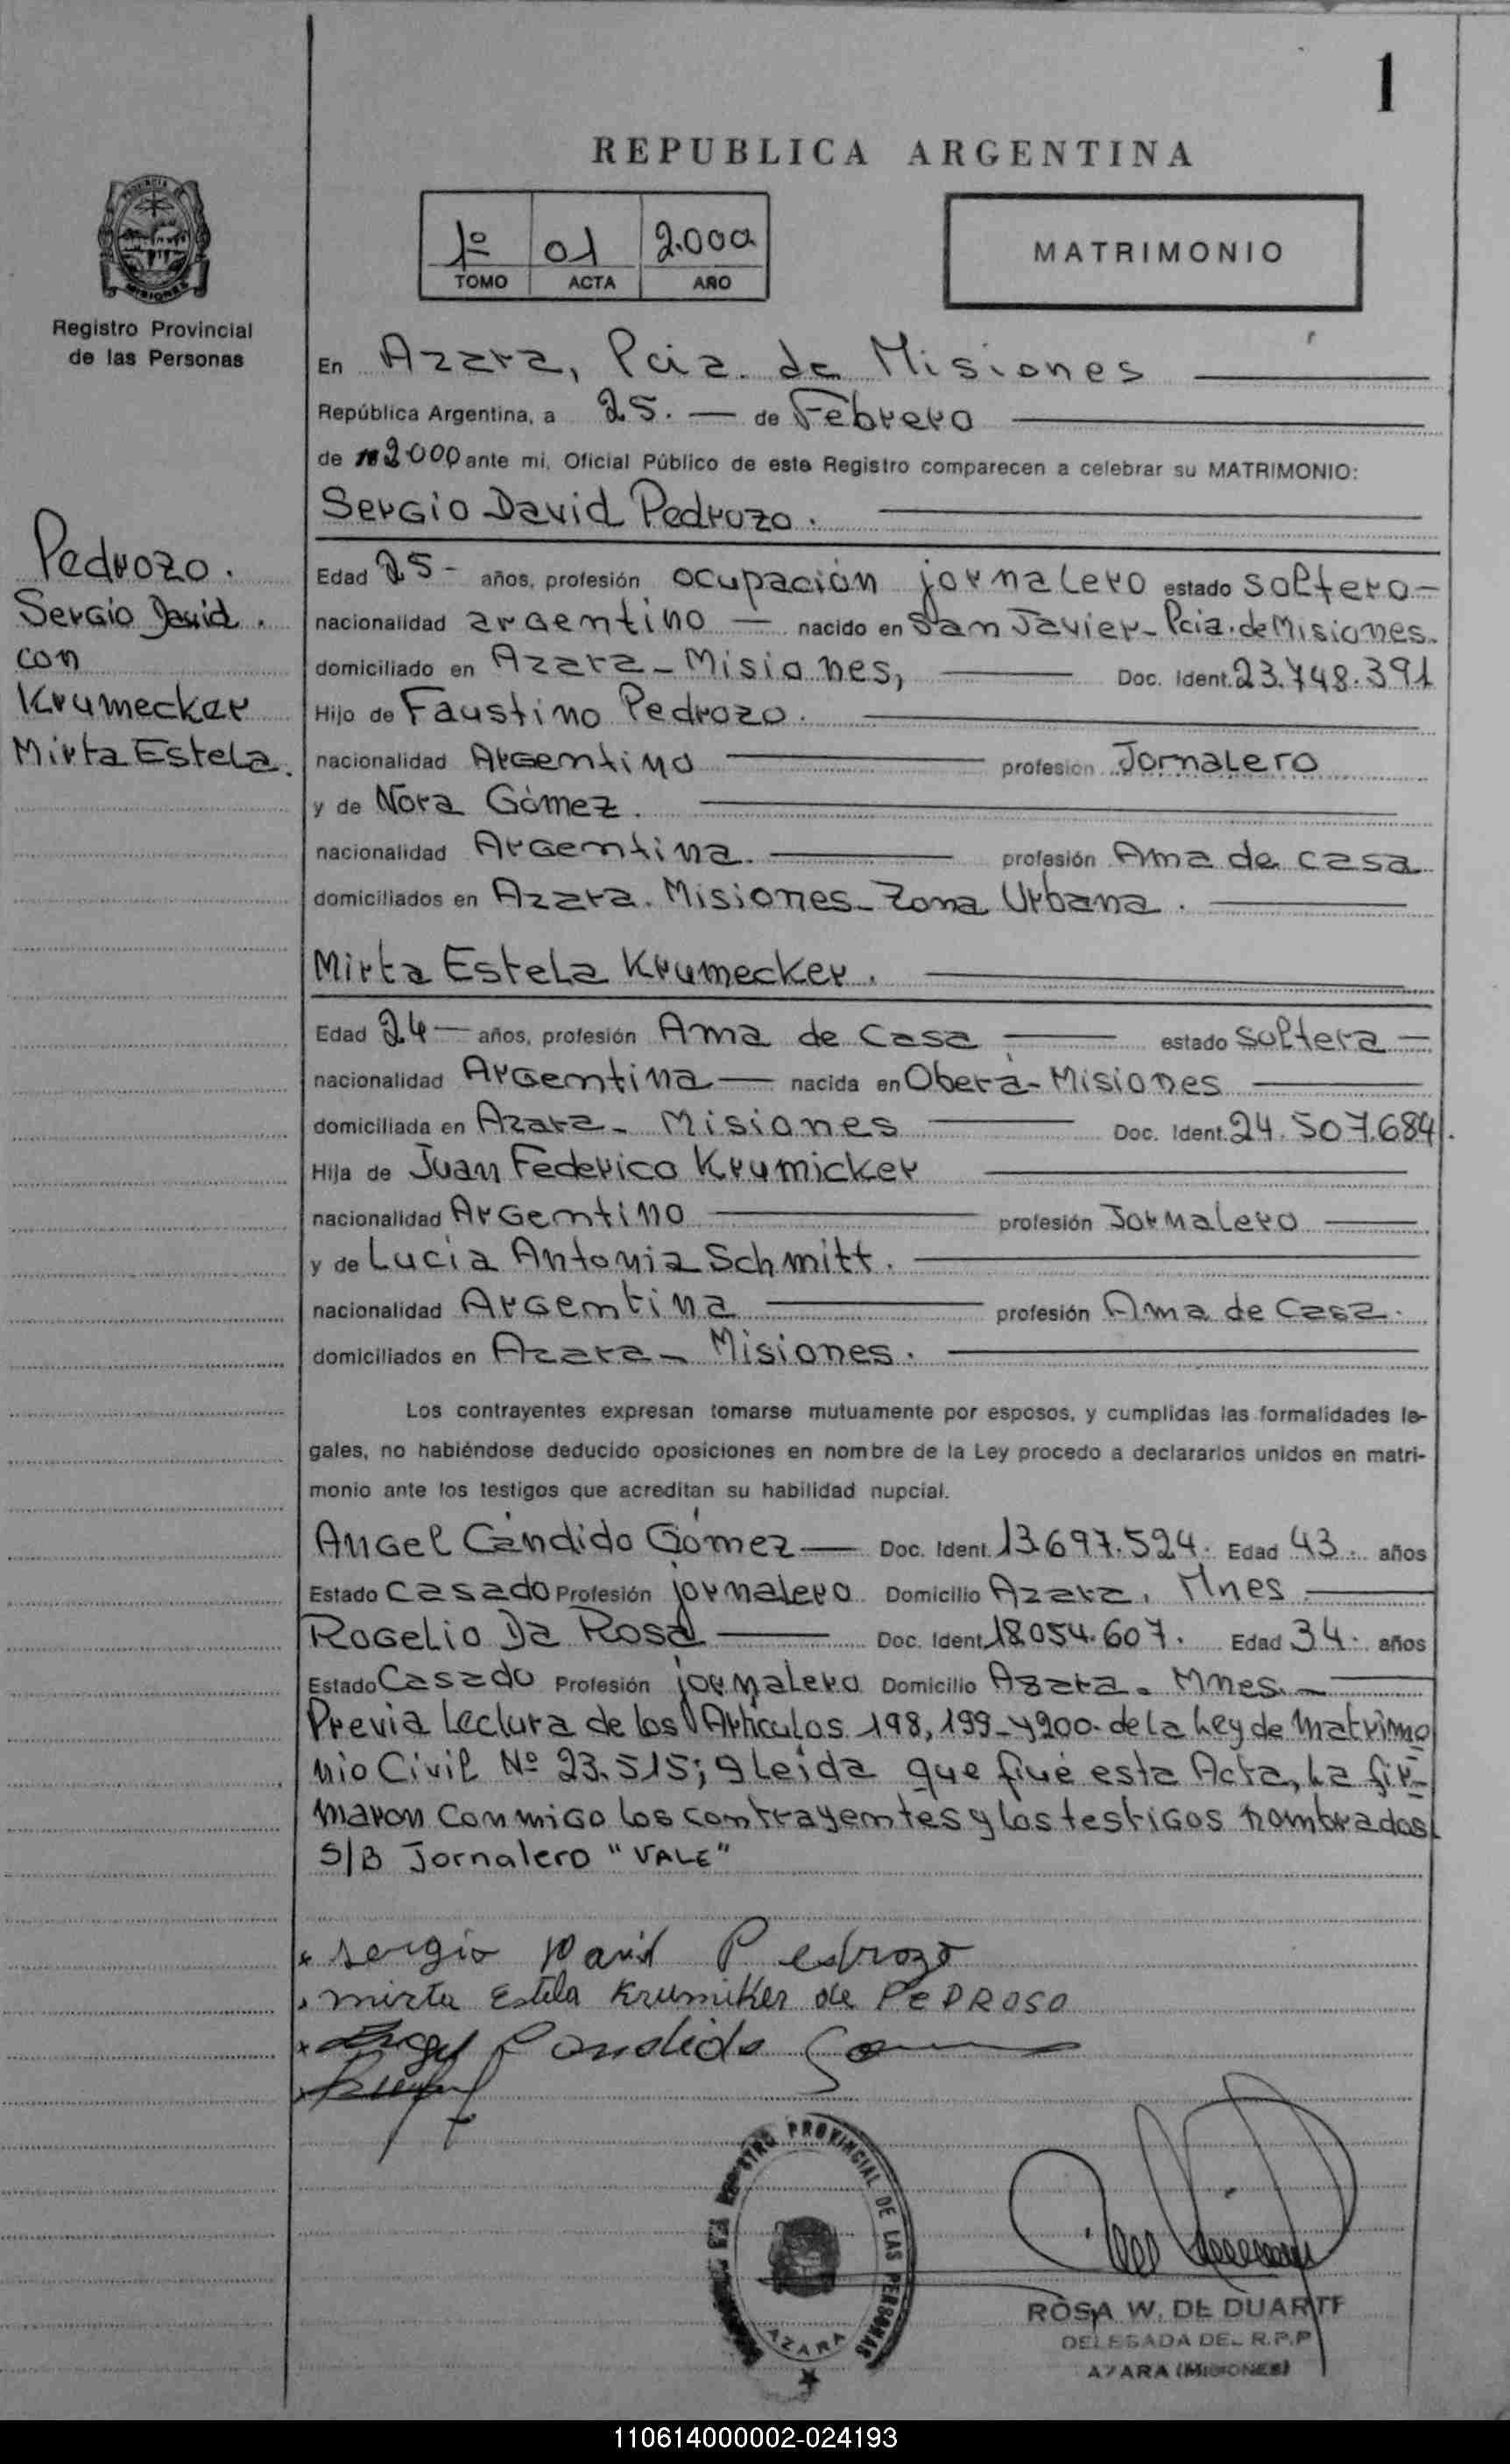 1
REPUBLICA ARGENTINA
1º 01 2.000
TOMO ACTA AÑO
MATRIMONIO
PROVINCIA DE
MISIONES
Registro Provincial
de las Personas
En Azara, Pcia. de Misiones
República Argentina, a 25. — de Febrero
de 2000 ante mi, Oficial Público de este Registro comparecen a celebrar su MATRIMONIO:
Sergio David Pedrozo.
Pedrozo.
Sergio David.
con
Krumecker
Mirta Estela.
Edad 25- años, profesión ocupación jornalero estado soltero-
nacionalidad argentino — nacido en San Javier- Pcia. de Misiones.
domiciliado en Azara-Misiones, Doc. Ident. 23.748.391
Hijo de Faustino Pedrozo.
nacionalidad Argentino profesión Jornalero
y de Nora Gómez.
nacionalidad Argentina. profesión Ama de casa
domiciliados en Azara. Misiones-Zona Urbana.
Mirta Estela Krumecker.
Edad 24— años, profesión Ama de Casa estado soltera—
nacionalidad Argentina— nacida en Oberá-Misiones
domiciliada en Azara- Misiones Doc. Ident. 24.507.684.
Hija de Juan Federico Krumicker
nacionalidad Argentino profesión Jornalero
y de Lucía Antonia Schmitt.
nacionalidad Argentina profesión Ama de Casa.
domiciliados en Azara- Misiones.
Los contrayentes expresan tomarse mutuamente por esposos, y cumplidas las formalidades le-
gales, no habiéndose deducido oposiciones en nombre de la Ley procedo a declararlos unidos en matri-
monio ante los testigos que acreditan su habilidad nupcial.
Angel Cándido Gómez— Doc. Ident. 13.697.524. Edad 43. años
Estado Casado Profesión jornalero Domicilio Azara, Mnes.
Rogelio Da Rosa Doc. Ident. 18.054.607. Edad 34. años
Estado Casado Profesión jornalero Domicilio Azara. Mnes.
Previa lectura de los Artículos 198, 199-y200. de la Ley de Matrimo
nio Civil Nº 23.515; y leída que fué esta Acta, la fir-
maron conmigo los contrayentes y los testigos nombrados
S/B Jornalero "VALE"
x sergio David Pedrozo
x mirta Estela Krumiker de PeDROSO
x Angel Candido Gom
REGISTRO PROVINCIAL DE LAS PERSONAS
AZARA
ROSA W. DE DUARTE
DELEGADA DEL R.P.P
AZARA (MISIONES)
110614000002-024193